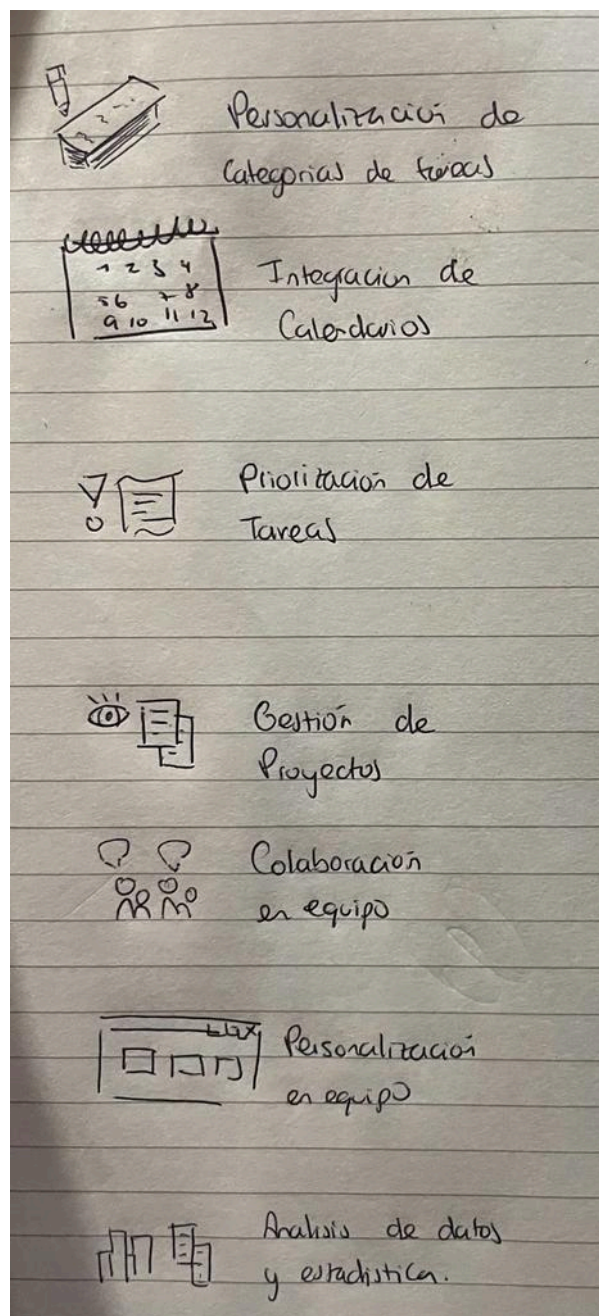 Personalización de
Categorias de tareas
1 2 3 4
5 6 7 8
9 10 11 12
Integracion de
Calendarios
Priorización de
Tareas
Gestión de
Proyectos
Colaboración
en equipo
Personalización
en equipo
Analisis de datos
y estadistica.